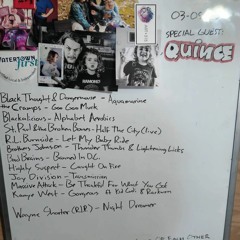 03-0
SPECIAL GUEST:
QUINCE
WATERTOWN
first
RAMONES
Black Thought & Dangermouse - Aquamarine
The Cramps - Goo Goo Muck
Blackalicious - Alphabet Aerobics
St. Paul & the Broken Bones - Half The City (live)
R.L. Burnside - Let My Baby Ride
Brothers Johnson - Thunder Thumbs & Lightening Licks
Bad Brains - Banned In D.C.
Highly Suspect - Caught On Fire
Joy Division - Transmission
Massive Attack - Be Thankful For What You Got
Kanye West - Gorgeous ft. Kid Cudi & Raekwon
Wayne Shorter (R.I.P.) - Night Dreamer
OTHER